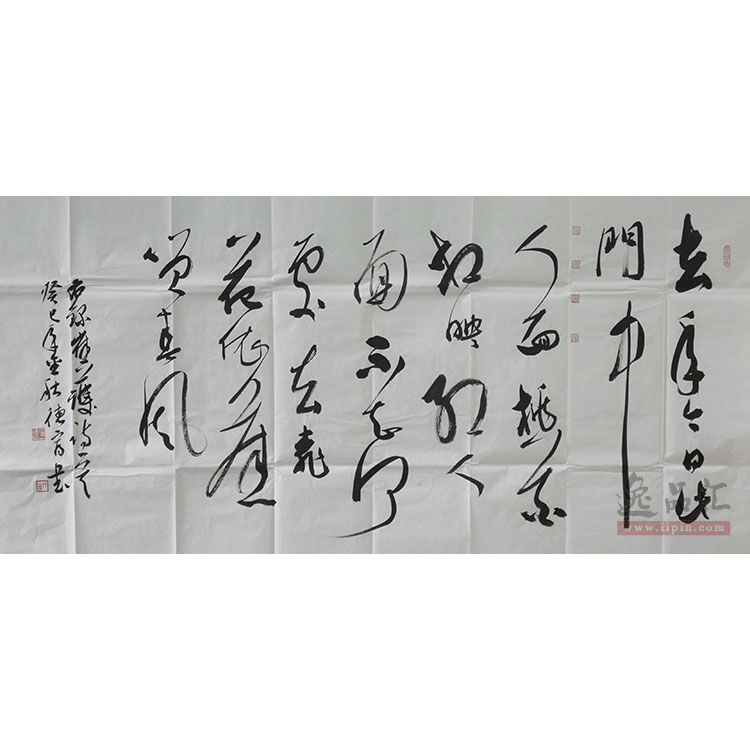 去年今日此
門中
人面桃花
相映紅人
面不知何
處去桃
花依舊
笑春風
錄崔護詩一首
癸巳秋德書
逸品汇
www.iipin.com